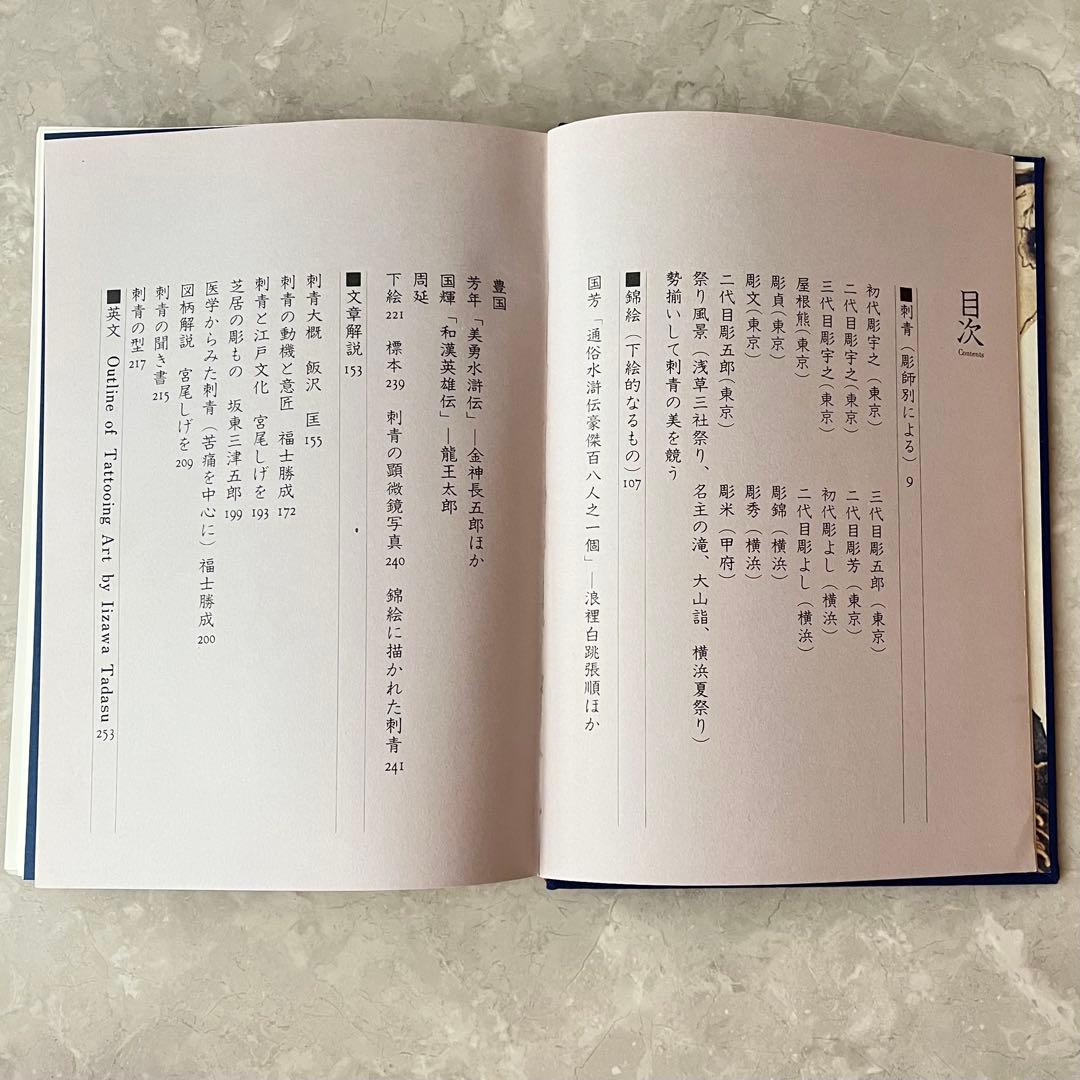 目次
Contents
■刺青（彫師別による）9
初代彫宇之（東京）
二代目彫宇之（東京）
三代目彫宇之（東京）
屋根熊（東京）
彫貞（東京）
彫文（東京）
二代目彫五郎（東京）
三代目彫五郎（東京）
二代目彫芳（東京）
初代彫よし（横浜）
二代目彫よし（横浜）
彫錦（横浜）
彫秀（横浜）
彫米（甲府）
祭り風景（浅草三社祭り、名主の滝、大山詣、横浜夏祭り）
勢揃いして刺青の美を競う
■錦絵（下絵的なるもの）107
国芳「通俗水滸伝豪傑百八人之一個」―浪裡白跳張順ほか
豊国
芳年「美勇水滸伝」―金神長五郎ほか
国輝「和漢英雄伝」―龍王太郎
周延
下絵221　標本239　刺青の顕微鏡写真240　錦絵に描かれた刺青241
■文章解説153
刺青大概　飯沢　匡155
刺青の動機と意匠　福士勝成172
刺青と江戸文化　宮尾しげを193
芝居の彫もの　坂東三津五郎199
医学からみた刺青（苦痛を中心に）福士勝成200
図柄解説　宮尾しげを209
刺青の聞き書215
刺青の型217
■英文　Outline of Tattooing Art by Iizawa Tadasu 253